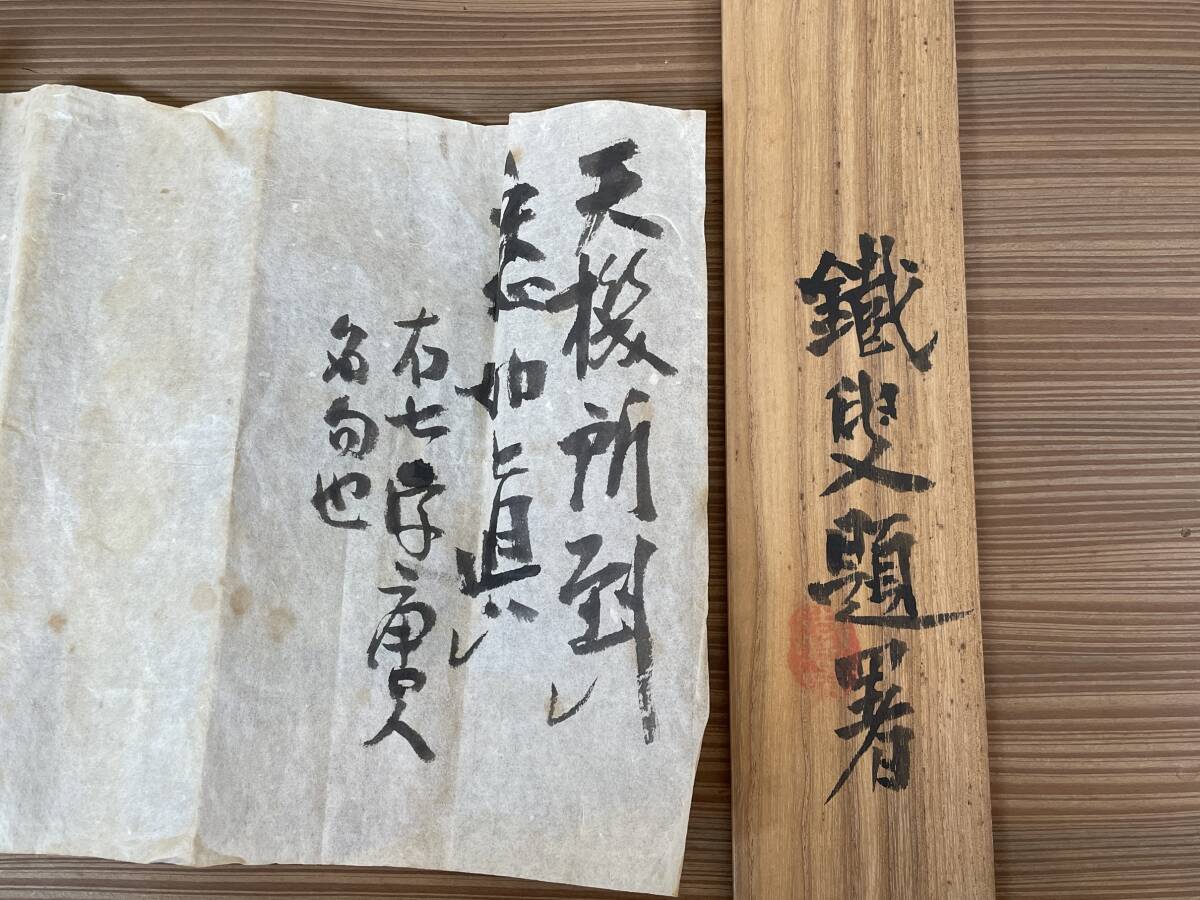 鐵叟題署
天機所到
悉如眞
右七字唐人
名句也